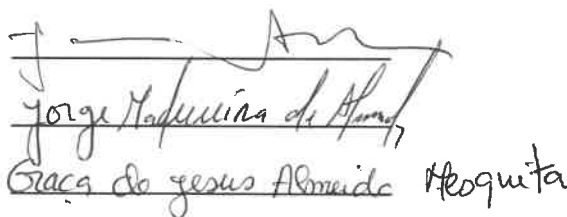 Jorge Madureira de Almeida
Graça de Jesus Almeida Mesquita